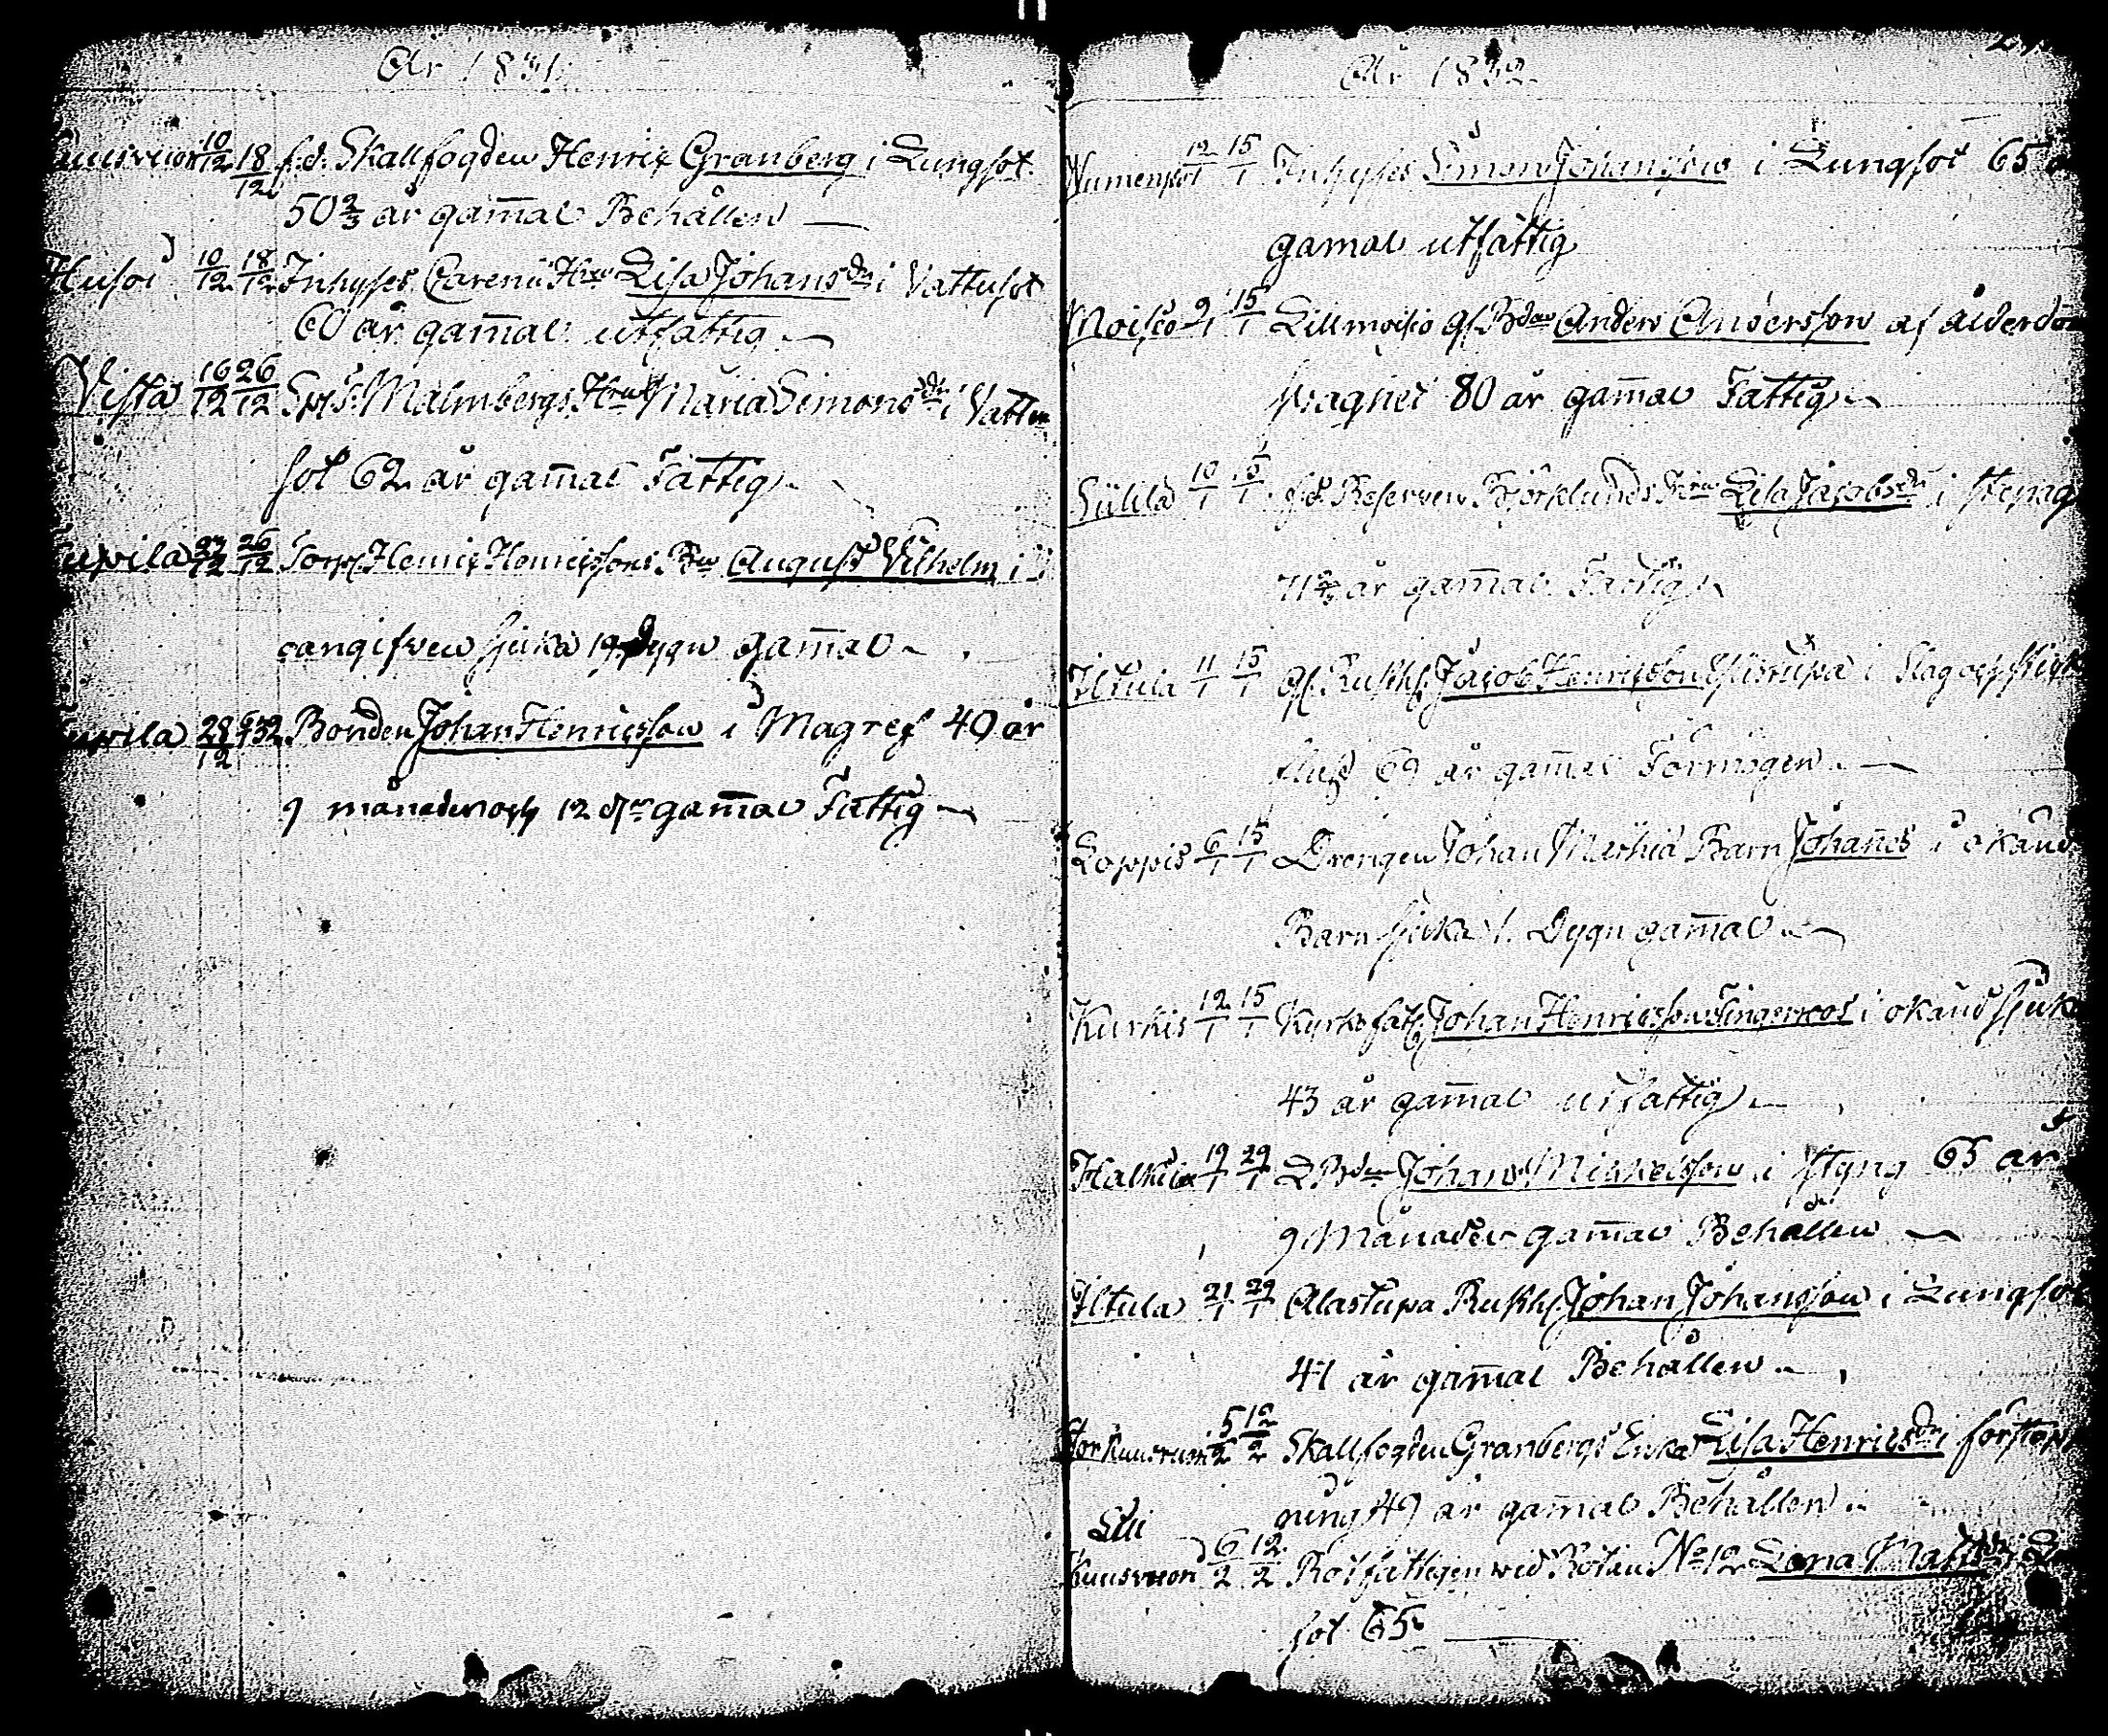 År 1831.
10/12 18/12 f.d. Skallfogden Henric Granberg i Lungsot.
50 2/3 år gam̄al Behållen
Husoi 10/12 18/12 Inhyses Hru Lisa Johansdr i Vattusot
60 år gam̄al utfattig
Vista 16/12 26/12 Malmbergs Hru Maria Simonsdr i Vattu
sot 62 år gam̄al Fattig
26/12 Torp. Henric Henricssons Bn August Vilhelm i
oangifven sjuka 19 Dygn gam̄al
28/12 Bonden Johan Henricsson i Magref 40 år
9 månader och 12 gam̄al Fattig
År 1832
12/1 15/1 Inhyses Simon Johansson i Lungsot 65
gamal utfattig
Moisio 9/1 15/1 Lillmoisio Gl. Bden Anders Andersson af ålderdom
80 år gam̄al Fattig
10/1 15/1 f.d. Reserven Björklunds Hru Lisa Jacobsdr i
71 år gam̄al Fattig
Iltula 11/1 15/1 Gl. Rusth. Jacob Henricsson Ylistupa i Slag och
69 år gam̄al Förmögen
Loppis 6/1 15/1 Drengen Johan Barn Johanes i okänd
Barn sjuka 1. Dygn gam̄al
Kurkis 12/1 15/1 Kyrkofatt. Johan Henricsson Fingerroos i okänd sjuk
43 år gam̄al utfattig
Halkila 19/1 29/1 Bden Johan Mickelsson i styng 65 år
9 Månader gam̄al Behållen
Iltula 21/1 29/1 Alastupa Rusth. Johan Johansson i Lungsot
41 år gam̄al Behållen
5/2 12/2 Skallfogden Granbergs Enka Lisa Henricsdr i förstopp
ning 49 år gam̄al Behållen
Lill
Kuusvuori 6/2 12/2 Rotfattigen wid Rotan No 12 Lena Mattsdr i
sot 65